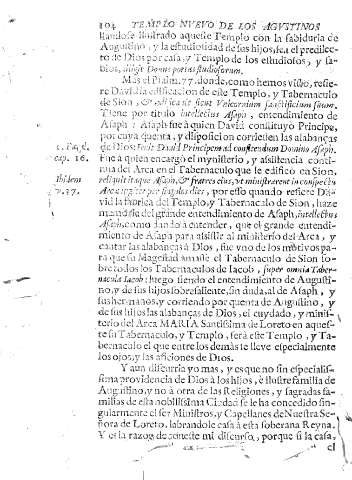 104 TEMPLO NUEVO DE LOS AGUSTINOS
llandose ilustrado aqueste Templo con la sabiduria de
Augustino, y la estudiosidad de sus hijos, serà el predilec-
to de Dios por casa, y Templo de los estudiosos, y sa-
bios, diligit Domus portas studiosorum.
Mas el Psalm. 77. donde, como hemos visto, refie
re David la edificacion de este Templo, y Tabernaculo
de Sion, & edificavit sicut Unicornium sanctificium suum.
Tiene por titulo intellectus Asaph, entendimiento de
Asaph: Asaph fue à quien David constituyò Principe,
por cuya quenta, y disposicion corriessen las alabanças
de Dios: fecit David Principem ad confitendum Domino Asaph.
1. Par.
cap. 16.
Fue à quien encargò el mynisterio, y assistencia conti-
nua del Arca en el Tabernaculo que le edificò en Sion.
Ibidem
v. 37.
reliquit itaque Asaph, & fratres eius, ut ministrarent in conspectu
Arcæ iugiter per singulos dies, por esso quando refiere Da-
vid la fabrica del Templo, y Tabernaculo de Sion, haze
mansion del grande entendimiento de Asaph, intellectus
Asaph, como dando à entender, que el grande entendi-
miento de Asaph para assistir al ministerio del Arca, y
cantar las alabanças à Dios, fue uno de los motivos pa-
ra que su Magestad amasse el Tabernaculo de Sion so-
bre todos los Tabernaculos de Iacob, super omnia Taber-
nacula Iacob: luego siendo el entendimiento de Augusti-
no, y de sus hijos sobresaliente, sin duda, al de Asaph, y
sus hermanos, y corriendo por quenta de Augustino, y
de sus hijos las alabanças de Dios, el cuydado, y minis-
terio del Arca MARIA Santissima de Loreto en aques-
te su Tabernaculo, y Templo, serà este Templo, y Ta-
bernaculo el que entre los demàs se lleve especialmente
los ojos, y las aficiones de Dios.
Y aun discurria yo mas, y es que no sin especialis-
sima providencia de Dios à los hijos, è ilustre familia de
Augustino, y no à otra de las Religiones, y sagradas fa-
milias de esta nobilissima Ciudad se le ha concedido sin-
gularmente el ser Ministros, y Capellanes de Nuestra Se-
ñora de Loreto, labrandole casa à esta soberana Reyna.
Y es la razon de aqueste mi discurso, porque si la casa,
el